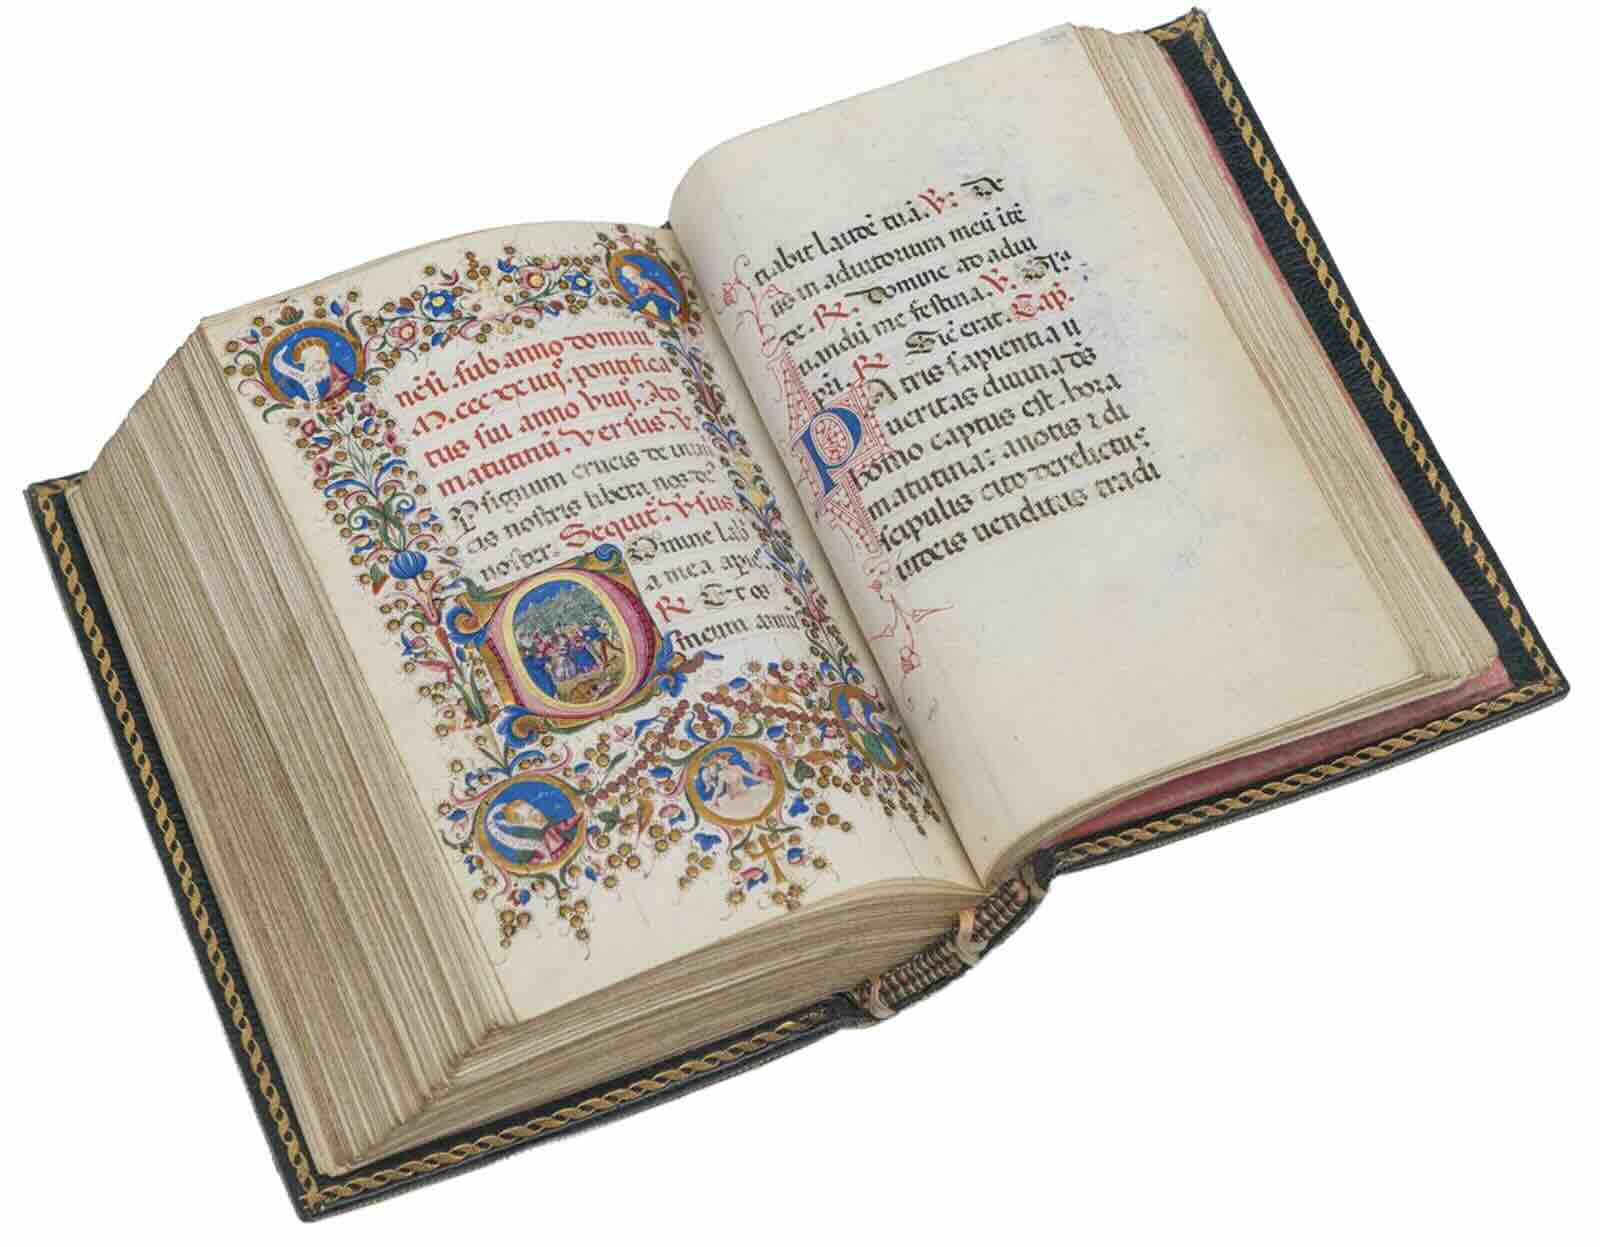 nēsi. sub anno domini
M.ccccxxiiij. pontifica
tus sui anno viiij. Ad
matutinū. Versus. V.
P signum crucis de inimi
cis nostris libera nos deˀ
noster. Sequit̄. Vsus
Domine lab
ia mea apies
℟ Et os
meum annū
tiabit laudē tuā. ℣. De
us in adiutorium meū itē
de. ℟. Domine ad adiu
uandū me festina. ℣. Gła
pr̄i. ℟ Sic̄ erat. Cap̄.
Patris sapientia ū
ueritas diuina dˀs
homo captus est hora
matutina: a notis ⁊ di
scipulis cito derelictus
iudeis uenditus tradi